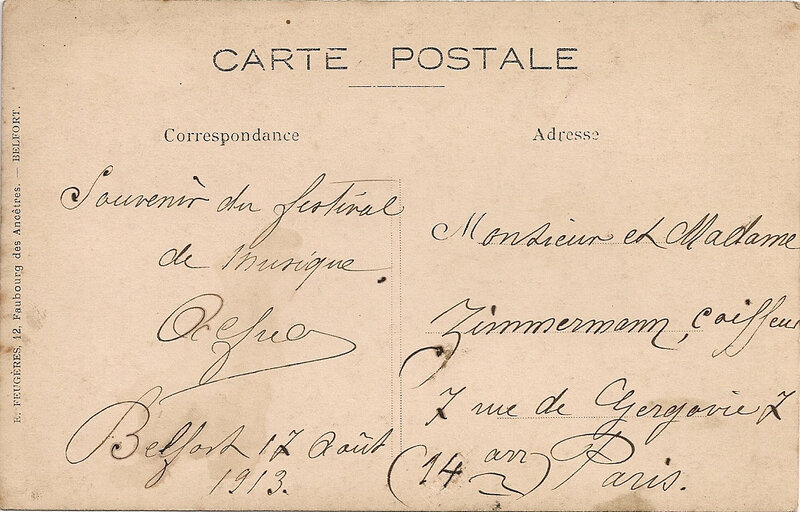 CARTE POSTALE
Correspondance
Souvenir du festival
de musique
Belfort 17 août
1913.
Adresse
Monsieur et Madame
Zimmermann, coiffeur
7 rue de Gergovie 7
(14 arr)
Paris.
E. FEUGÈRES, 12, Faubourg des Ancêtres. — BELFORT.